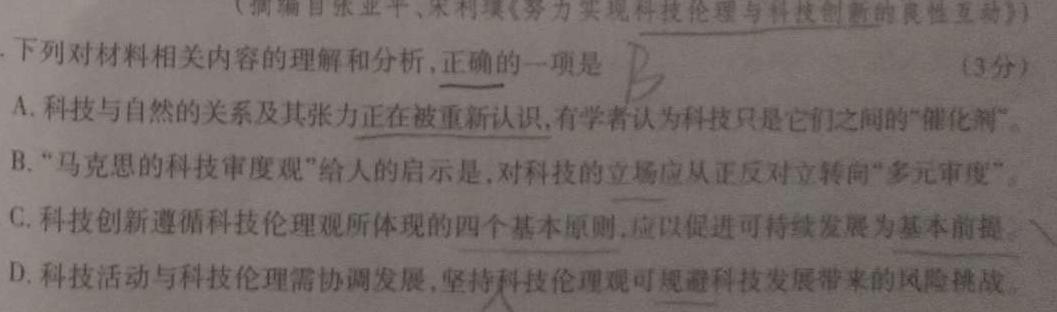 (摘编自张亚平、宋利璞《努力实现科技伦理与科技创新的良性互动》)
.下列对材料相关内容的理解和分析,正确的一项是 B (3分)
A.科技与自然的关系及其张力正在被重新认识,有学者认为科技只是它们之间的“催化剂”。
B.“马克思的科技审度观”给人的启示是,对科技的立场应从正反对立转向“多元审度”。
C.科技创新遵循科技伦理观所体现的四个基本原则,应以促进可持续发展为基本前提。
D.科技活动与科技伦理需协调发展,坚持科技伦理观可规避科技发展带来的风险挑战。